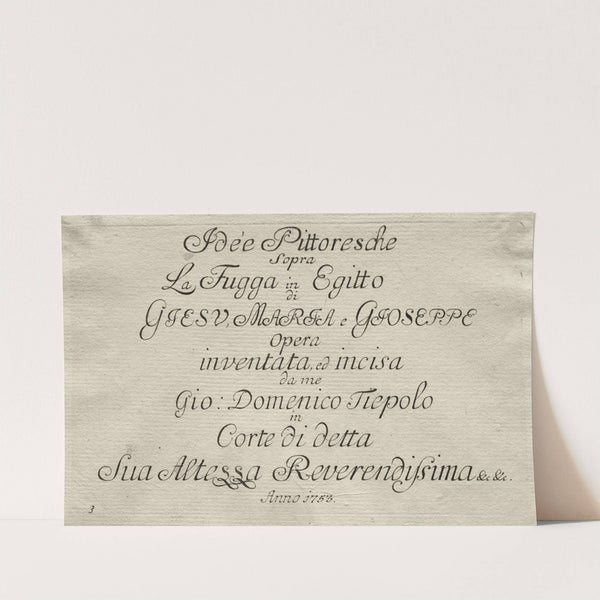 Idée Pittoresche
Sopra
La Fugga in Egitto
di
GIESV, MARIA e GIOSEPPE
Opera
inventata, ed incisa
da me
Gio: Domenico Tiepolo
in
Corte di detta
Sua Altezza Reverendißima &c. &c.
Anno 1753.
3